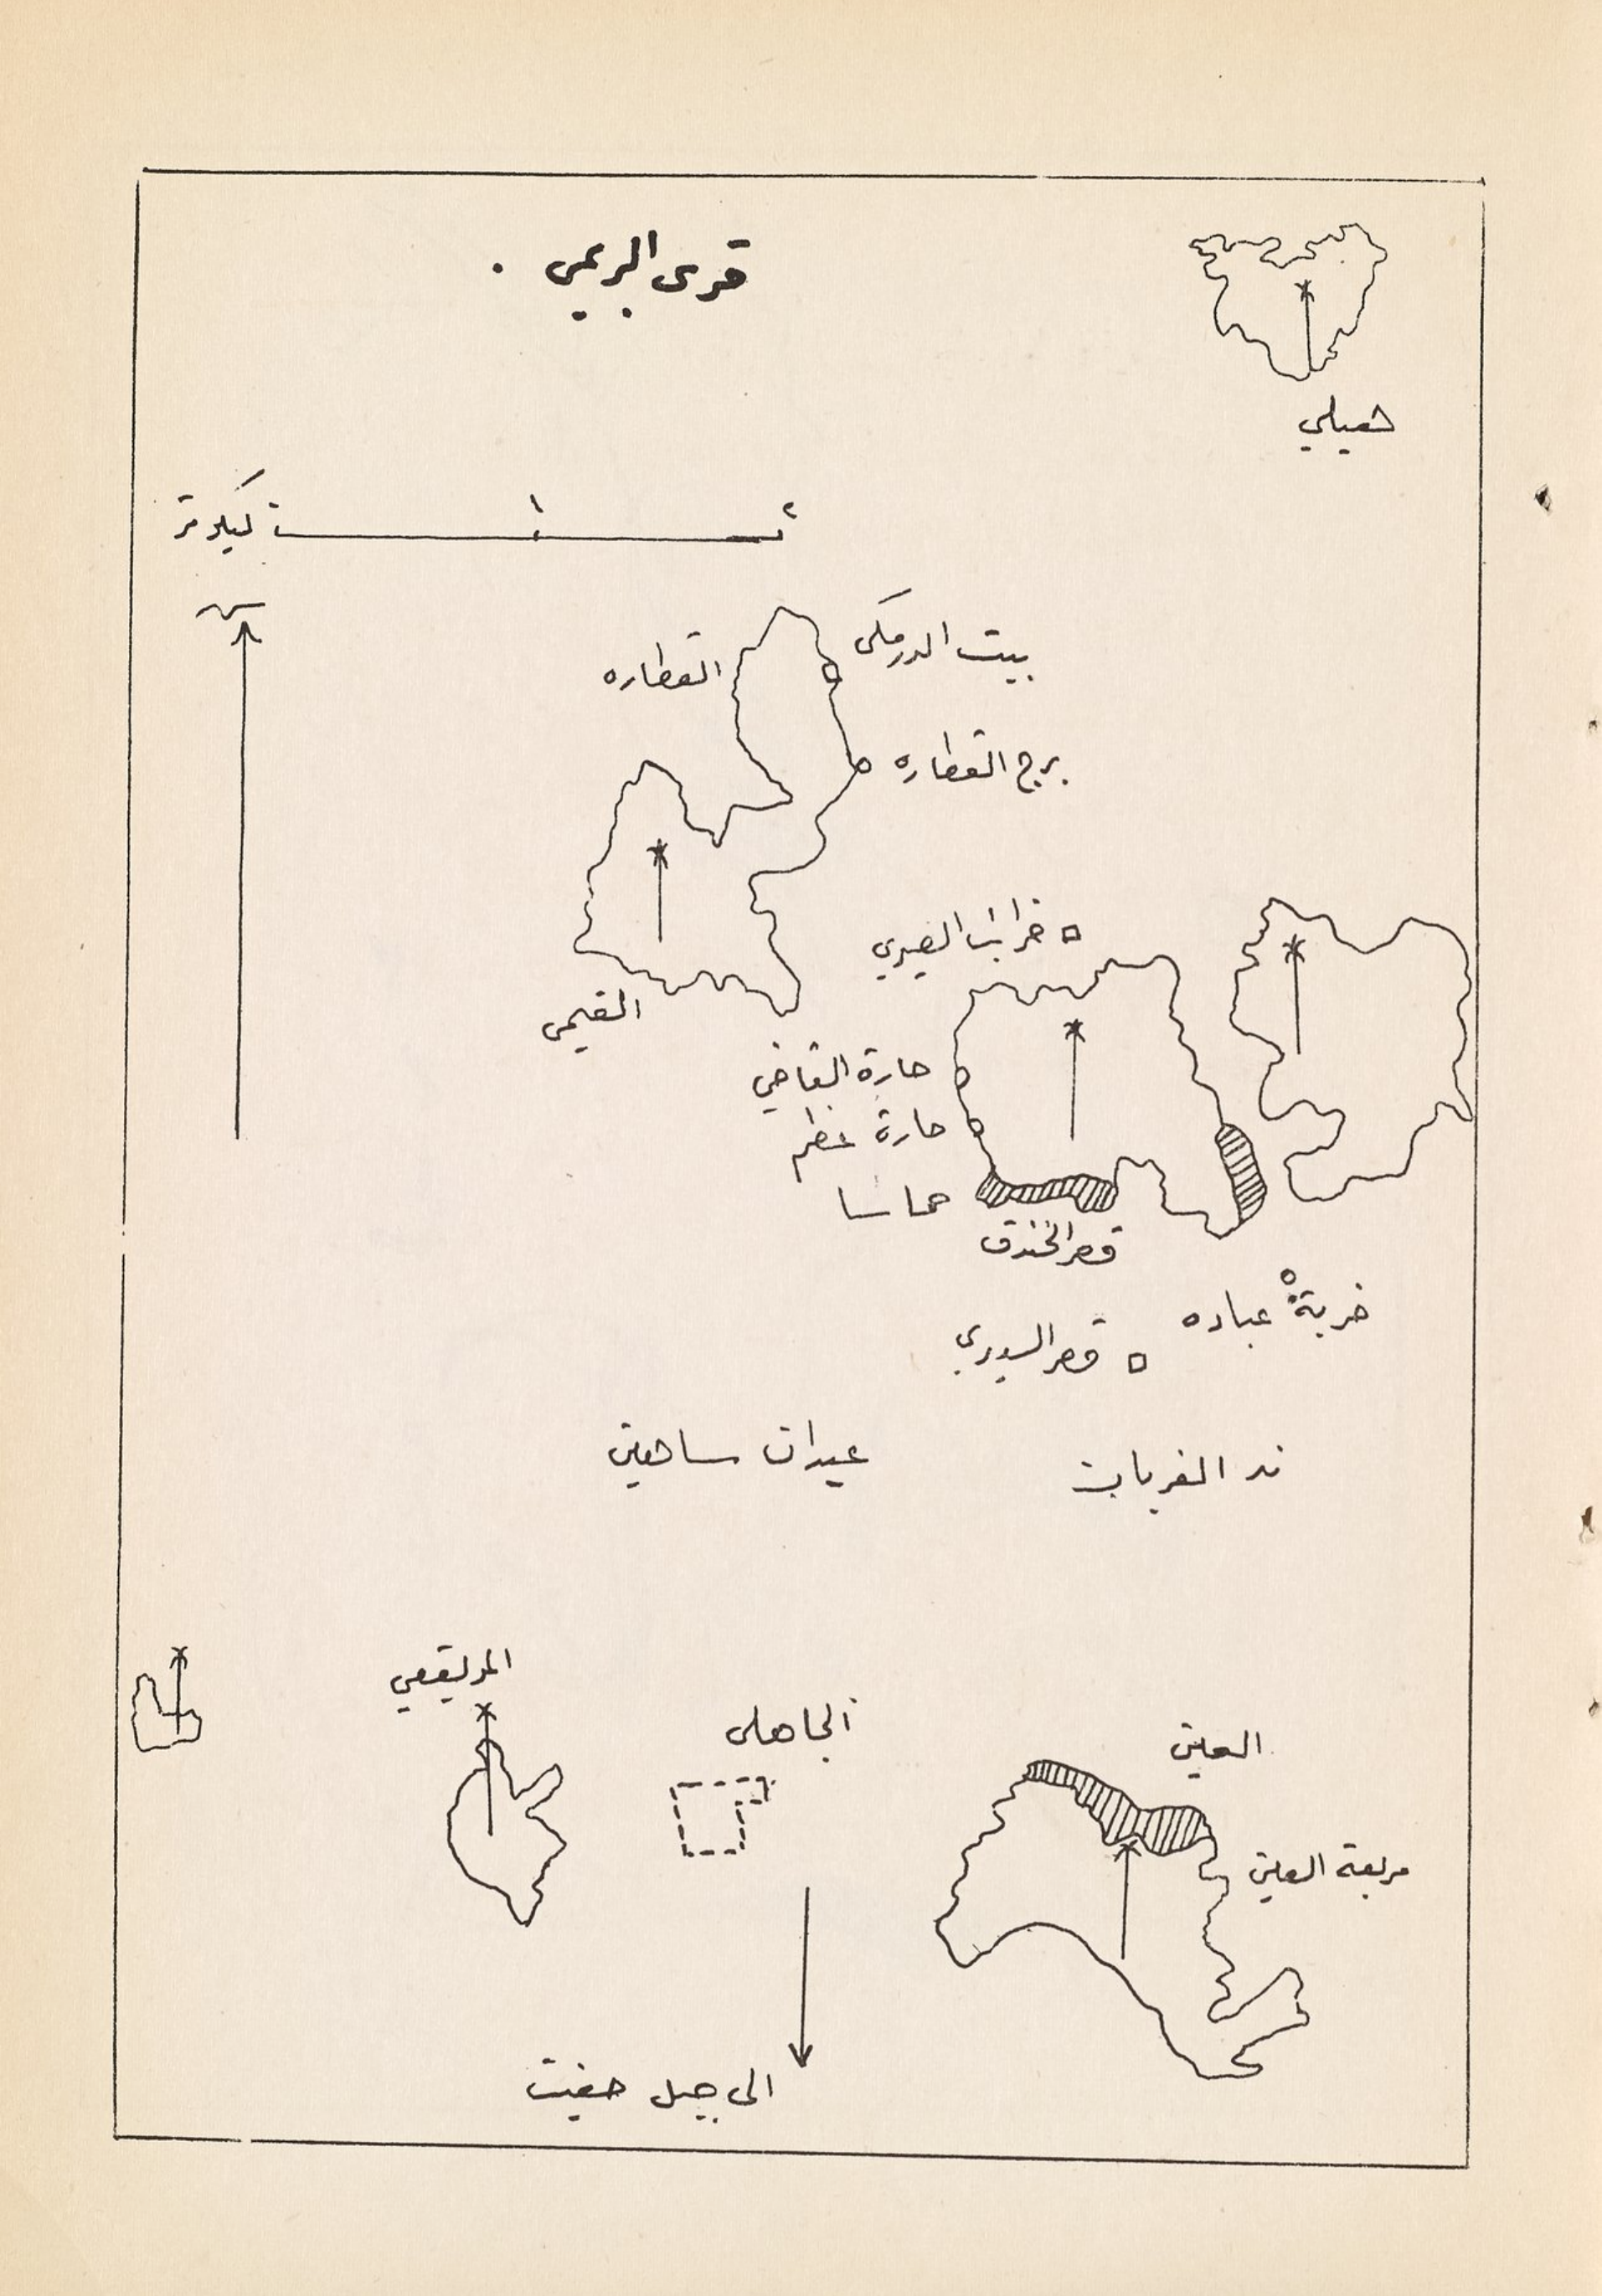 قرى البريمي .
هيلي
٢ ١ ٠ كيلومتر
بيت الدرمكى
القطاره
برج القطاره
خرائب الصيري
القيمى
حارة القاضي
حارة
حماسا
قصر الخندق
خربة عباده
قصر السديري
ند الغربان
عيدان ساهين
المويقعي
الجاهلى
العين
مربعة العين
الى جبل حفيت